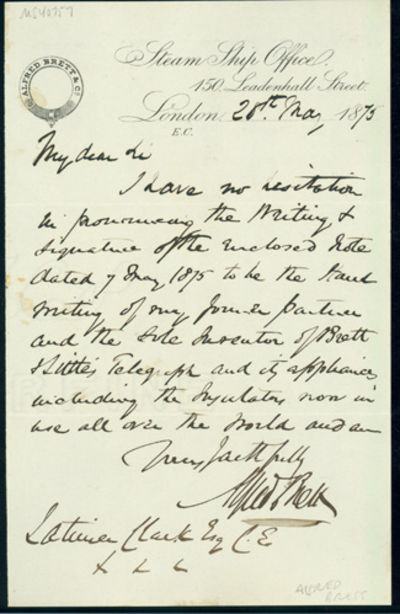 ALFRED BRETT & Co
Steam Ship Office.
150, Leadenhall Street.
London, 28th May 1875
E.C.
My dear Sir
I have no hesitation
in pronouncing the Writing &
signature of the enclosed Note
dated 7 May 1875 to be the Hand
writing of my former Partner
and the sole Inventor of Brett
& Little's Telegraph and its appliances
including the Insulators now in
use all over the World and am
Yours faithfully
Alfred Brett
Latimer Clark Esq C.E
ALFRED
BRETT